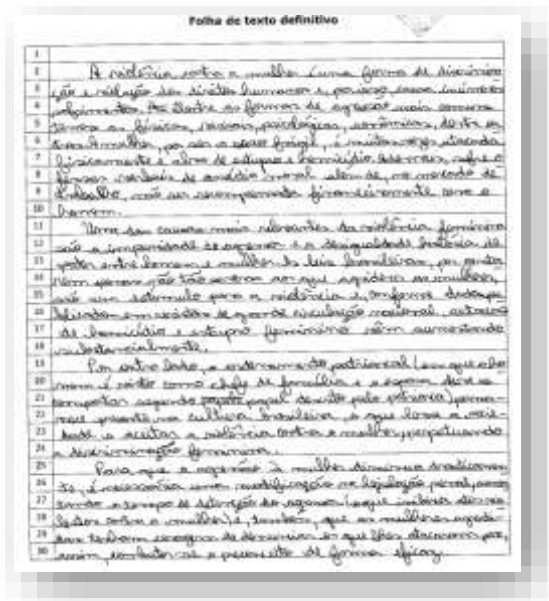 Folha de texto definitivo
1
2 A violência contra a mulher é uma forma de discrimina
3 ção e violação dos direitos humanos e por isso, causa inúmeros
4 sofrimentos. Dentre as formas de agressão mais comuns
5 temos as físicas, sexuais, psicológicas, econômicas, dentre ou
6 tras. A mulher, por ser o sexo frágil, é muitas vezes atacada
7 fisicamente e alvo de estupro e homicídio. Ademais, sofre o
8 verbais de assédio moral além de, no mercado de
9 trabalho, não ser recompensada financeiramente como o
10 homem.
11 Uma das causas mais relevantes da violência feminina
12 são a impunidade do agressor e a desigualdade histórica de
13 poder entre homem e mulher. As leis brasileiras, por
14 penas não tão severas aos que agridem as mulheres,
15 são um estímulo para a violência e, conforme dados pu
16 blicados em de grande circulação nacional, os casos
17 de homicídio e estupro feminino vêm aumentando
18 substancialmente.
19 Por outro lado, o ordenamento patriarcal (em que o ho
20 mem é visto como chefe de família e a esposa deve se
21 comportar segundo papel descrito pelo patriarca) perma-
22 nece presente na cultura brasileira, o que leva a socie-
23 dade a aceitar a violência contra a mulher, perpetuando
24 a discriminação feminina.
25 Para que a agressão à mulher diminua drasticamen
26 te, é necessária uma modificação na legislação penal, aumen
27 tando o tempo de detenção do agressor (o que inibiria
28 contra a mulher) e, também, que as mulheres agredi
29 das tenham coragem de denunciar os que lhes atacaram para,
30 assim, combater-se a de forma eficaz.